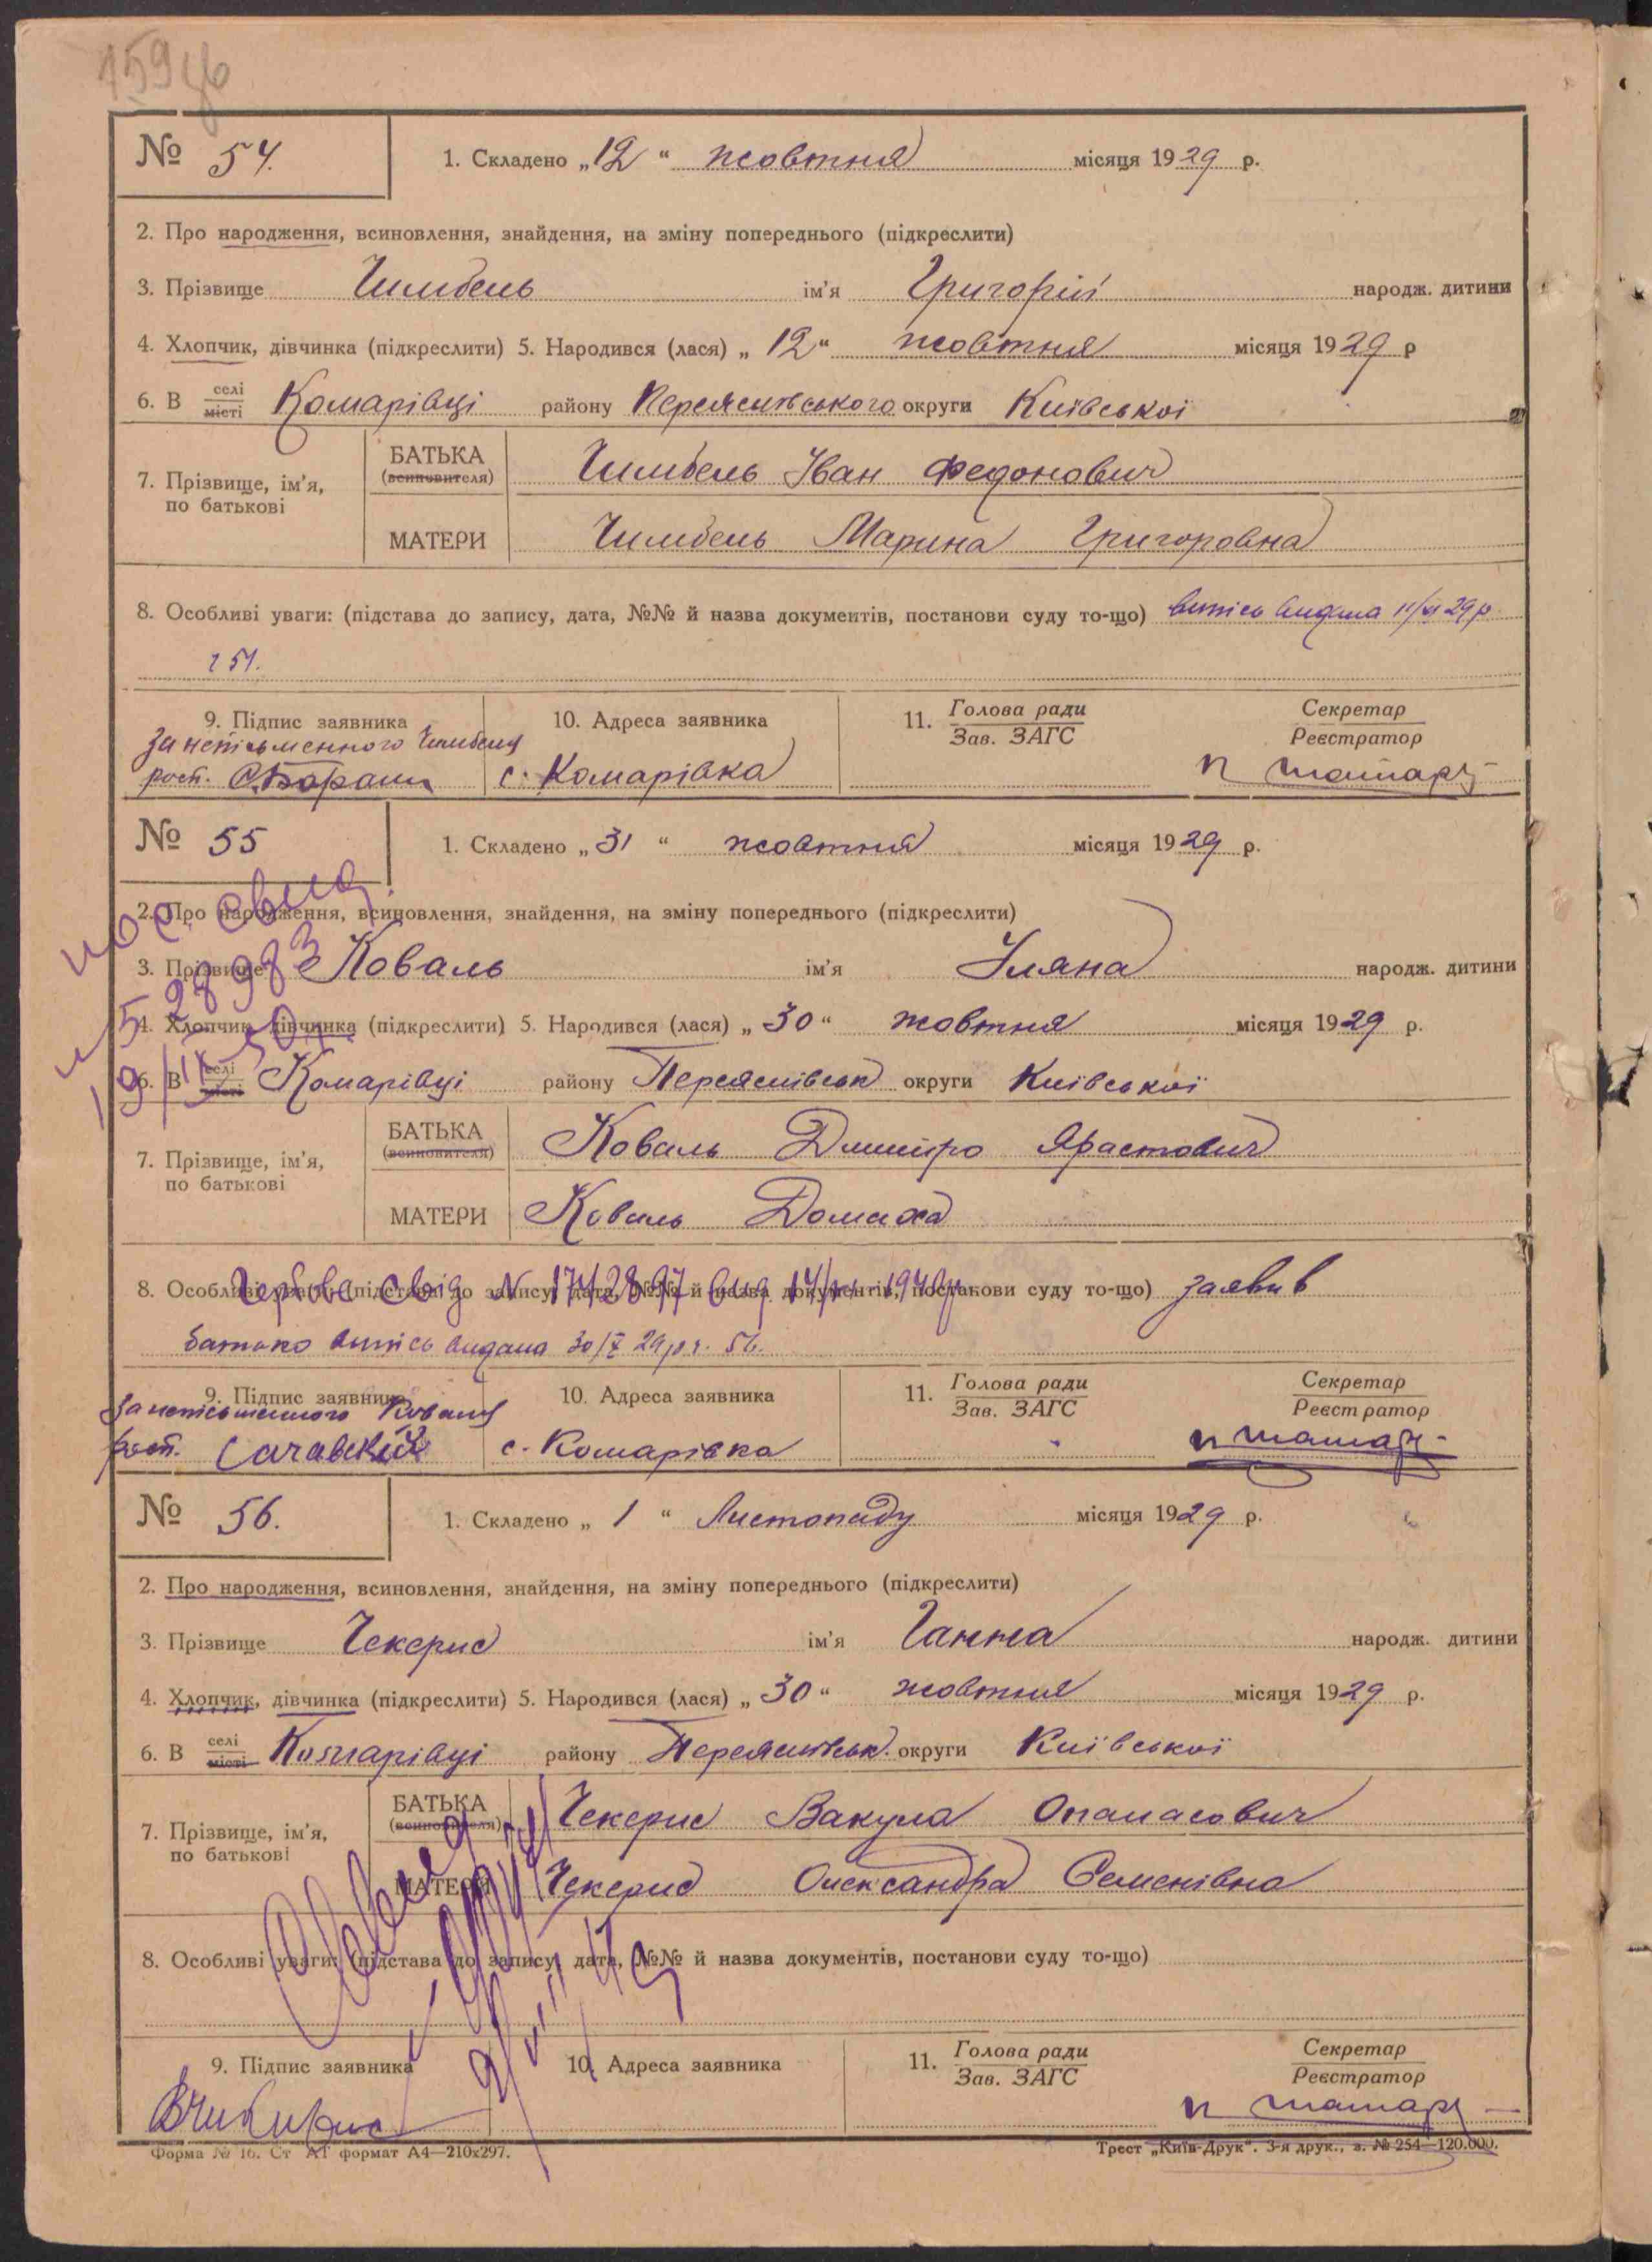 № 54. 1. Складено „12“ жовтня місяця 1929 р.
2. Про народження, всиновлення, знайдення, на зміну попереднього (підкреслити)
3. Прізвище Чимбель ім'я Григорій народж. дитини
4. Хлопчик, дівчинка (підкреслити) 5. Народився (лася) „12“ жовтня місяця 1929 р
6. В селі місті Комарівці району Переяслівського округи Київської
7. Прізвище, ім'я, по батькові
БАТЬКА (всиновителя) Чимбель Іван Федонович
МАТЕРИ Чимбель Марина Григоровна
8. Особливі уваги: (підстава до запису, дата, №№ й назва документів, постанови суду то-що) витісь видана 29 р.
9. Підпис заявника 10. Адреса заявника 11. Голова ради Зав. ЗАГС Секретар Реєстратор
за непісьменного
рост. с. Комарівка
№ 55 1. Складено „31“ жовтня місяця 1929 р.
2. Про народження, всиновлення, знайдення, на зміну попереднього (підкреслити)
3. Прізвище Коваль ім'я Уляна народж. дитини
4. Хлопчик, дівчинка (підкреслити) 5. Народився (лася) „30“ жовтня місяця 1929 р.
6. В селі місті Комарівці району Переяслівськ округи Київської
7. Прізвище, ім'я, по батькові
БАТЬКА (всиновителя) Коваль Дмитро Ярастович
МАТЕРИ Коваль Домаха
8. Особливі уваги: (підстава до запису, дата, №№ й назва документів, постанови суду то-що) заявив
батько витісь видана 30/X 29 р. ч. 56.
9. Підпис заявника 10. Адреса заявника 11. Голова ради Зав. ЗАГС Секретар Реєстратор
за непісьменного Коваля
рост. с. Комарівка
№ 56. 1. Складено „1“ Листопаду місяця 1929 р.
2. Про народження, всиновлення, знайдення, на зміну попереднього (підкреслити)
3. Прізвище Чекерис ім'я Ганна народж. дитини
4. Хлопчик, дівчинка (підкреслити) 5. Народився (лася) „30“ жовтня місяця 1929 р.
6. В селі місті Комарівці району Переяслівськ. округи Київської
7. Прізвище, ім'я, по батькові
БАТЬКА (всиновителя) Чекерис Вакула Опанасович
МАТЕРИ Чекерис Олександра Семенівна
8. Особливі уваги: (підстава до запису, дата, №№ й назва документів, постанови суду то-що)
9. Підпис заявника 10. Адреса заявника 11. Голова ради Зав. ЗАГС Секретар Реєстратор
Форма № 16. Ст АТ формат А4—210х297. Трест „Київ-Друк“. 3-я друк., з. № 254—120.000.